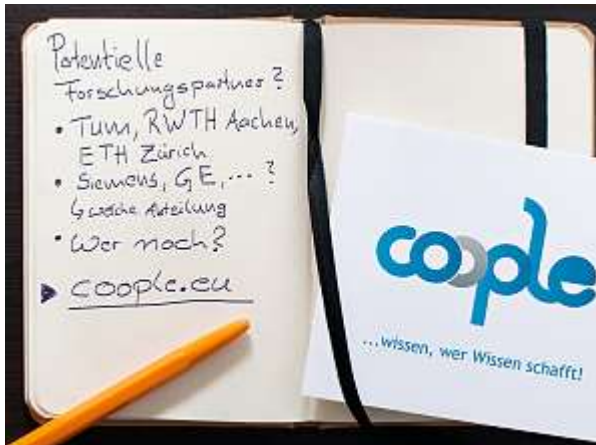 Potentielle
Forschungspartner?
• TUM, RWTH Aachen,
ETH Zürich
• Siemens, GE, ... ?
↳ welche Abteilung
• Wer noch?
▶ coople.eu
coople
...wissen, wer Wissen schafft!